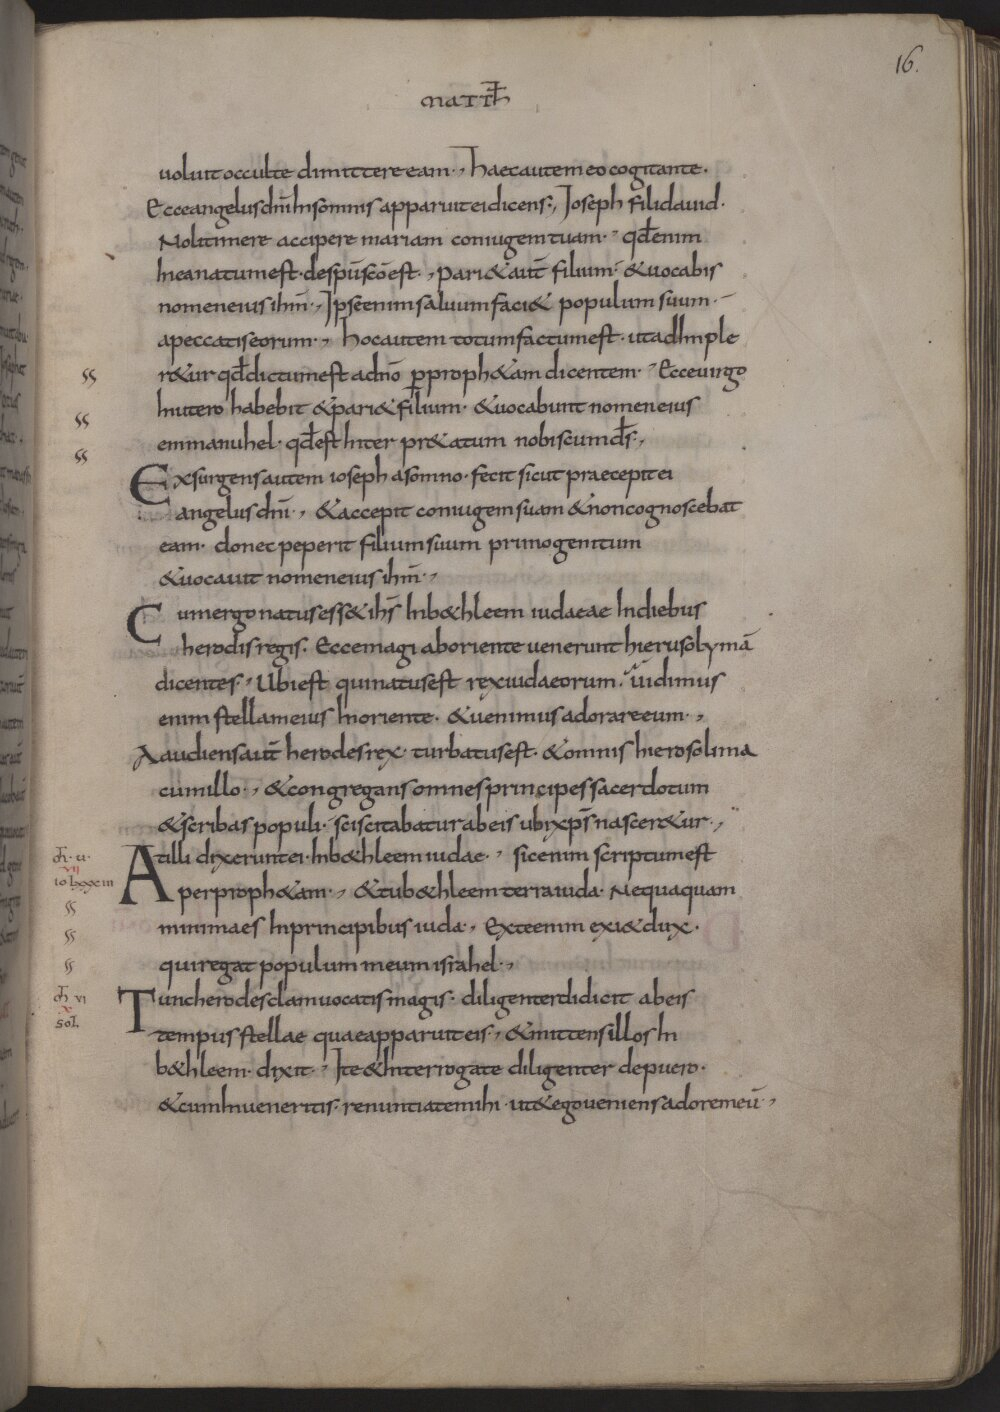 16.
MATTH̄
uoluit occulte dimittere eam·, haec autem eo cogitante·
Ecce angelus dn̄i In somnis apparuit ei dicens·, Ioseph fili dauid·
Noli timere accipere mariam coniugem tuam· qđ enim
In ea natum est· de sp̄u sc̄o est·, pari& aut̄ filium· & uocabis
nomen eius ih̄m·, Ipse enim saluum faci& populum suum·
a peccatis eorum·, hoc autem totum factum est· ut adImple
r&ur qđ dictum est a dn̄o p̱ proph&am dicentem· Ecce uirgo
In utero habebit & pari& filium· & uocabunt nomen eius
emmanuhel· qđ est Inter pr&atum nobiscum d̄s·,
Exsurgens autem ioseph a somno· fecit sicut praecepit ei
angelus dn̄i·, & accepit coniugem suam & non cognoscebat
eam· donec peperit filium suum primogenitum
& uocauit nomen eius ih̄m·,
Cum ergo natus ess& ih̄s In b&hleem iudaeae In diebus
herodis regis· Ecce magi ab oriente uenerunt hierusolymā
dicentes· Ubi est qui natus est rex iudaeorum· uidimus
enim stellam eius In oriente· & uenimus adorare eum·,
Audiens aut̄ herodes rex· turbatus est· & omnis hierosolima
cum illo·, & congregans omnes principes sacerdotum
& scribas populi· sciscitabatur ab eis ubi xp̄s nascer&ur·,
At illi dixerunt ei· In b&hleem iudae·, sic enim scriptum est
per proph&am·, & tu b&hleem terra iuda· Nequaquam
minima es In principibus iuda·, Ex te enim exi& dux·
qui regat populum meum israhel·,
Tunc herodes clam uocatis magis· diligenter didicit ab eis
tempus stellae quae apparuit eis·, & mittens illos In
b&hleem· dixit·, Ite & Interrogate diligenter de puero·
& cum Inueneritis· renuntiate mihi· ut & ego ueniens adorem eū·,
u·
VII
io lxxxiii
VI
X
sol.